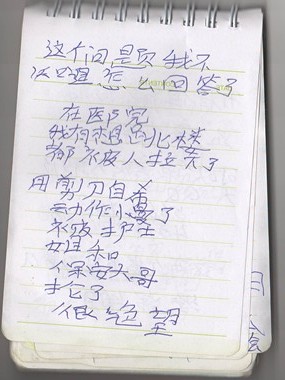 这个问题我不
知道怎么回答了
在医院
我有想过跳楼
都被人拉了
用剪刀自杀
动作慢了
被护士
姐和
保安大哥
抢了
很绝望